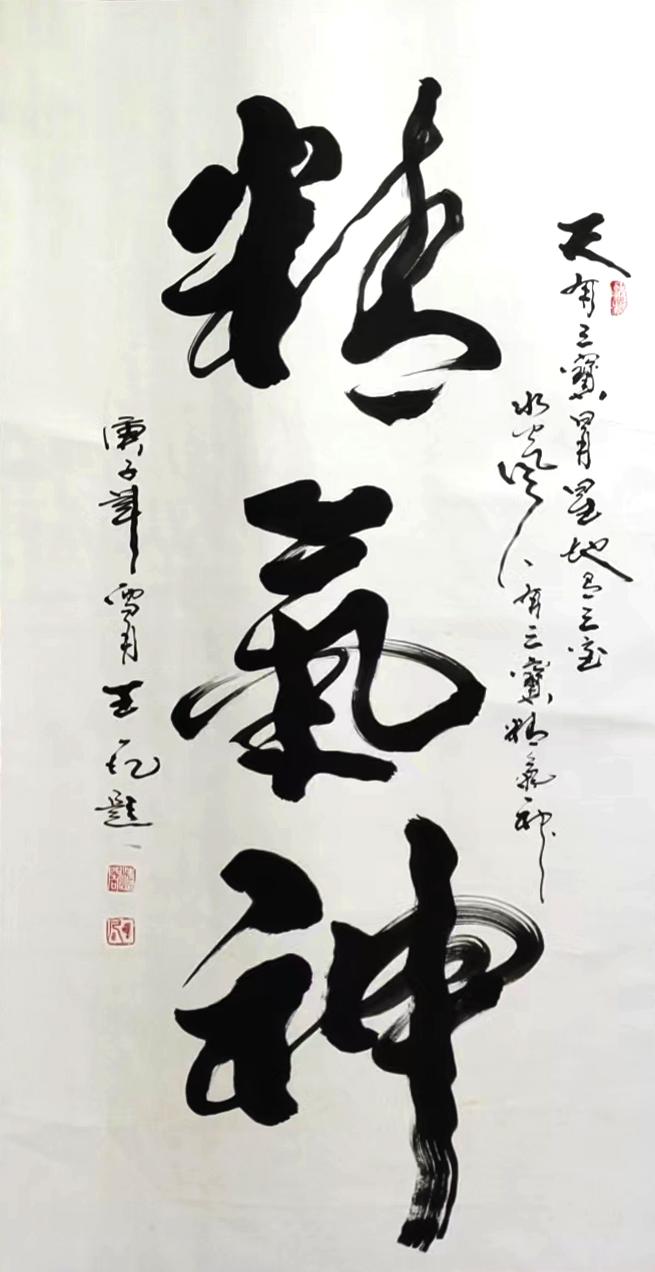 天有三寶日月星地有三宝
水火風人有三寶精氣神
精氣神
庚子年雪月王題